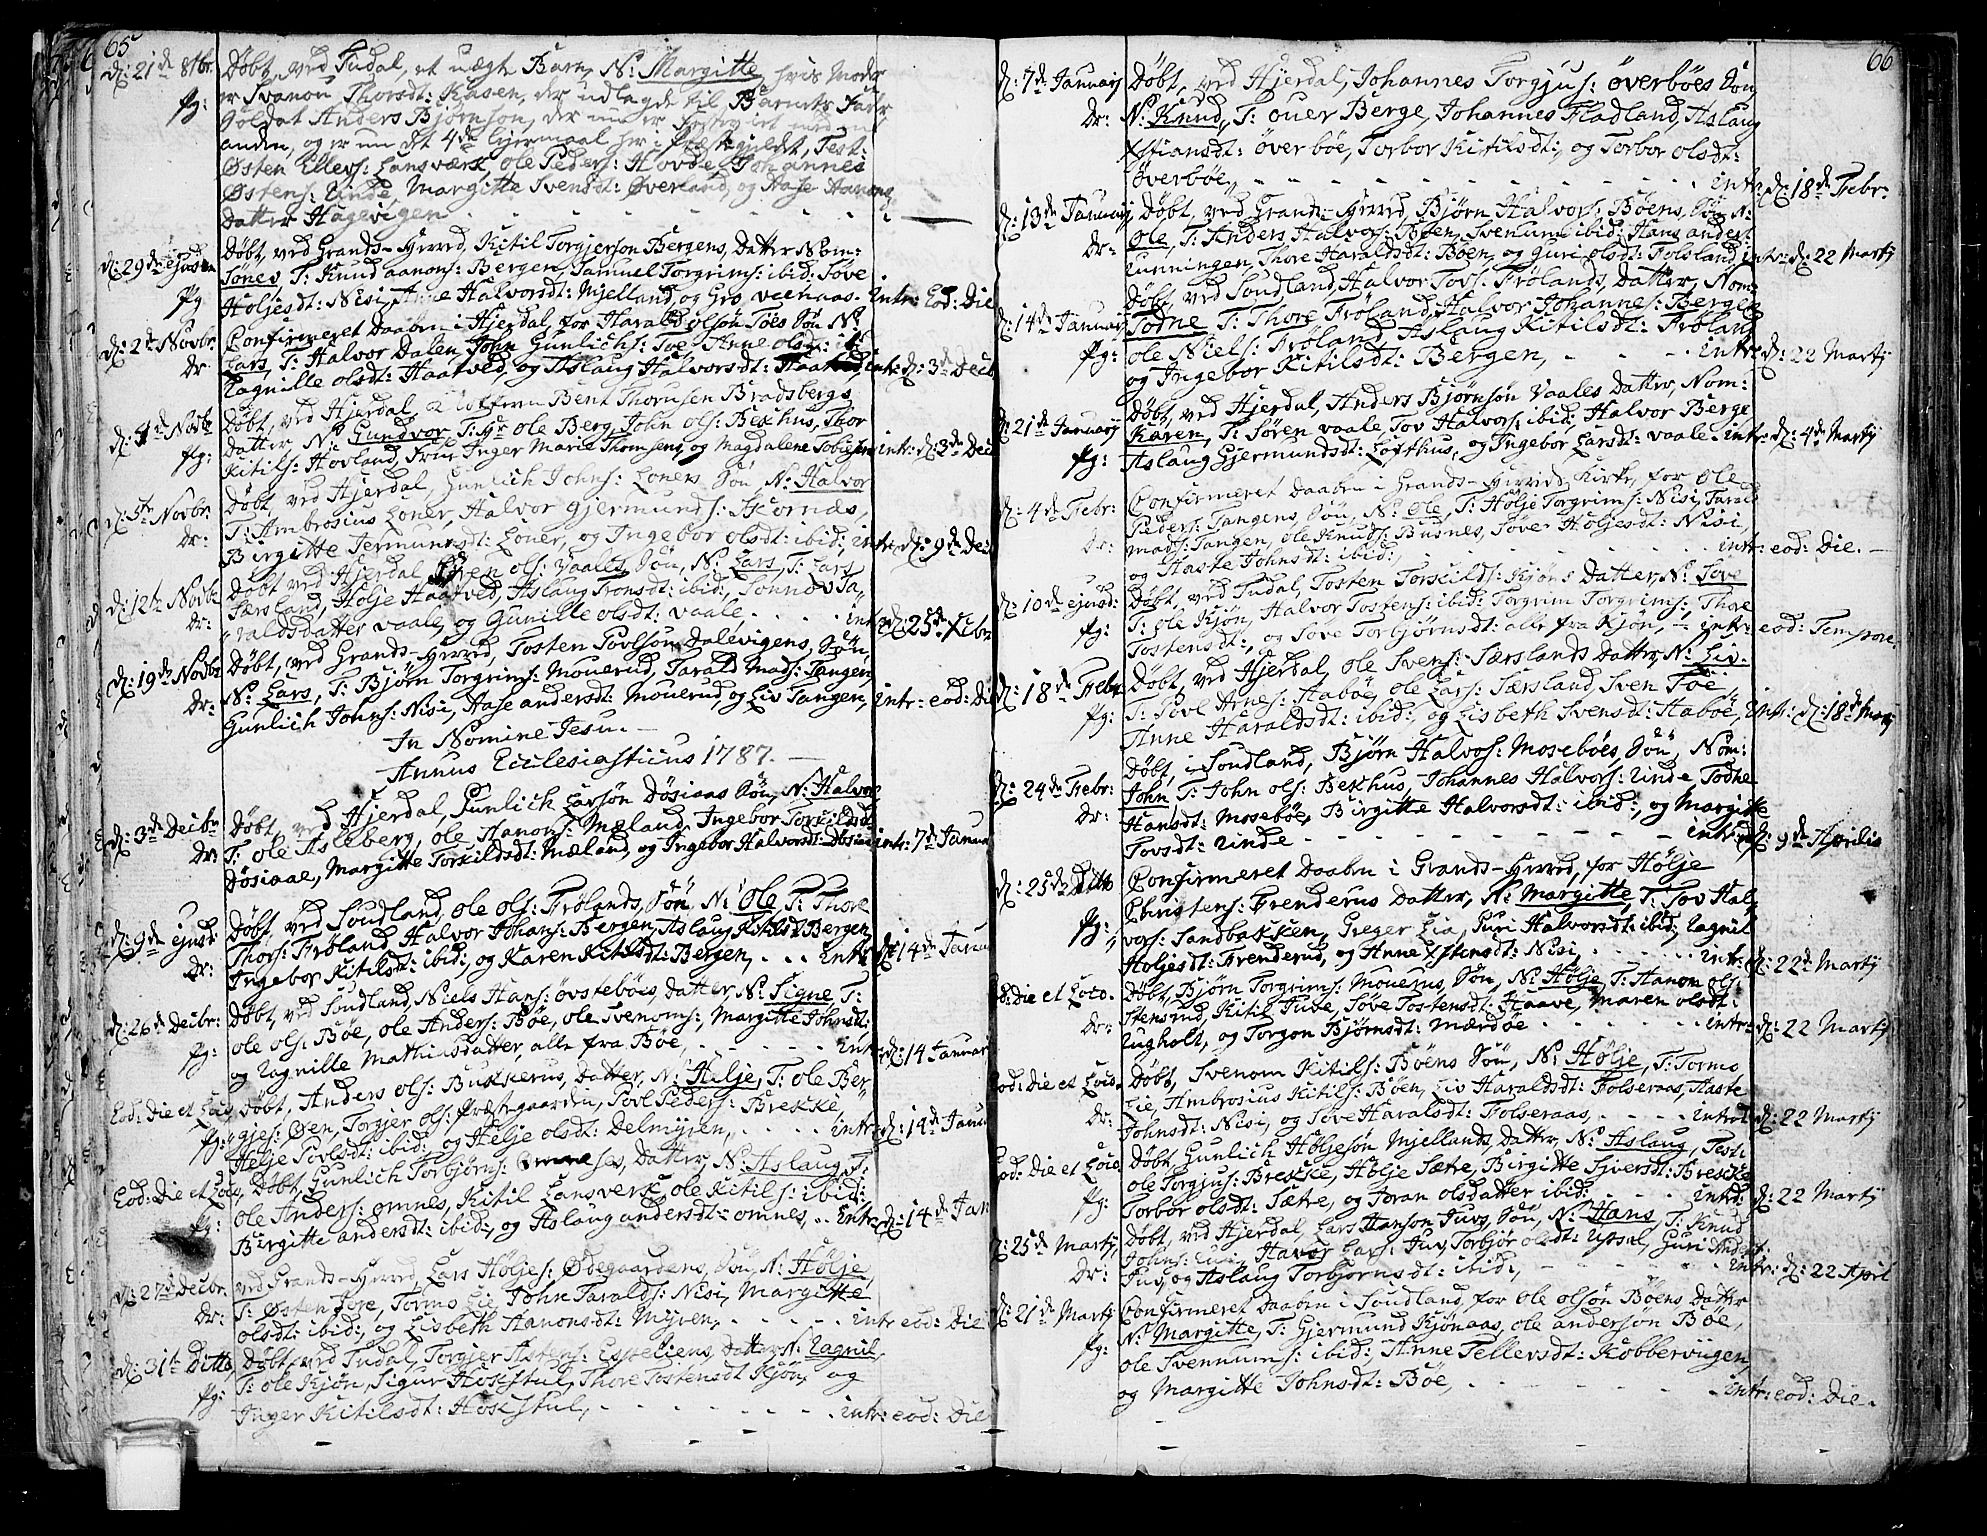 65
d: 21de 8tbr: Døbt, ved Tudal, et uægte Barn, N: Margitte, hvis Moder
pg: er Svanou Thorsdt: Kasen, der udlagde til Barnets Fader
Soldat Anders Bjørnsøn, der nu er
anden, og er nu det 4de Lejermaal her i Præstegieldet, Test:
Østen Ellevs: Lansværk, ole Peders: Hovde, Johannes
Østens: Linde, Margitte Svensdt: Øverland, og Aase Aanons
Datter Hagevigen
d: 29de ejusdem Døbt, ved Grands-Herred, Kitil Torgjersøn Bergens, Datter Nom:
Tones, T: Knud aanons: Bergen, Samuel Torgrims: ibid: Tove
pg Holjesdt: Nisi, Anne Halvorsdt: Mjelland, og Gro veenaas. Intr: Eod: Die
d: 2de Novbr: Confirmeret Daaben i Hjerdal for Harald olsøn Toes Søn N:
dr: Lars, T: Halvor Dalen, John Gunlichs: Toe, Anne olsdt: ibid:
Ragnille olsdt: Haatved, og Aslaug Halvorsdt: Haatved, intr: d: 3de Decb
Døbt, ved Hjerdal, Bent Thomsen Bradsbergs
d: 4de Novbr Datter N: Gundvor T: Hr ole Berg, John ols: Bekhus, Thor
pg: Kitils: Hovland, Frue Inger Marie Thomsens, og Magdalene Tobiesen intr: d: 3de Dec
Døbt, ved Hjerdal, Gunlich Johns: Loners Søn, N: Halvor
d: 5te Novbr: T: Ambrosius Loner, Halvor gjermunds: Skornæs,
dr: Birgitte Jermundsdt: Loner, og Ingebor olsdt: ibid:, intr: d: 9de Dec
Døbt ved Hjerdal, Søren ols: Vaales Søn, N: Lars, T: Lars
d: 12te Novbr Særsland, Holje Haatved, Aslaug Tronsdt: ibid:, Tonnov Ta,
dr: raldsdatter vaale, og Gunille olsdt: vaale. intr: d: 25de Xtbr
Døbt, ved Grands-Herred, Tosten Povlsøn Dalevigens, Søn
d: 19de Novbr N: Lars, T: Bjørn Torgrims: Mouerud, Tarald Mads: Tangen,
dr: Gunlich Johns: Nisi, Aase andersdt: Mouerud, og Liv Tangen, intr: eod: Die
In Nomine Jesu.
Annus Ecclesiasticus 1787.
d: 3de Decbr Døbt, ved Hjerdal, Gunlich Larsøn Dosiaas Søn, N: Halvor
dr: T: ole Asleberg, ole Aanons: Mæland, Ingebor Torkildsdt:
Dosiaae, Margitte Torkildsdt: Mæland, og Ingebor Halvorsdt: Dosiaae intr: 7de Janua
Døbt, ved Soudland, ole ols: Frølands, Søn, N: Ole, T: Thore
d: 9de ejusd: Thors: Frøland, Halvor Johans: Bergen, Aslaug Kitilsdt: Bergen,
dr: Ingebor Kitilsdt: ibid:, og Karen Kitilsdt: Bergen, intr: d: 14de Janua
Døbt, ved Soudland, Niels Hans: øvstebøes, Datter, N: Signe, T:
d: 26de Decbr: ole ols: Bøe, ole Anders: Bøe, ole Svenoms:, Margitte Johnsdt:
pg: og Ragnille Mathiusdatter, alle fra Bøe, intr: d: 14 Januar
Døbt, Anders ols: Bukkerus, Datter, N: Helje, T: ole Ber
Eod: Die et Loco, gjes: Øen, Torgjer ols: Præstegaarden, Tove Peders: Brekke,
pg: Helje Tovsdt: ibid:, og Helje olsdt: Delmyren, intr: d: 14de Janua
Døbt, Gunlich Torbjørns: Omneses, Datter, N: Aslaug T:
Eod: Die et Loco, ole Anders: omnes, Kitil Lansverk, ole Kitils: ibid:,
pg: Birgitte andersdt: ibid:, og Aslaug andersdt: omnes, intr: d: 14de Jan
ved Grands-Herred, Lars Høljes: Ødegaardens, Søn, N: Hølje,
d: 27de Decbr: T: Østen Fore, Tormo Lie, John Taralds: Nisi, Margitte
dr: olsdt: ibid:, og Lisbeth Aanonsdt: Myren, intr: eod: Die
d: 31te Ditto, Døbt, ved Tudal, Torgjer Astens: Espeliens, Datter, N: Ragnil,
pg: T: ole Kjøn, Sigur Hokstul, Thore Tostensdt: Kjøn, og
Inger Kitilsdt: Hokstul, intr: eod: Die
66
d: 7de Januarj Døbt, ved Hjerdal, Johannes Torgjus: överböes Søn,
dr: N: Knud, T: ouer Berge, Johannes Fladland, Aslaug
Xstiansdt: överböe, Torbor Kitilsdt:, og Torbor olsdt:
överböe, intr: d: 18de Febr:
d: 13de Januarj Døbt, ved Grands-Herred, Bjørn Halvors: Bøens, Søn N:
dr: Ole, T: Anders Halvors: Bøen, Svenum ibid: Hans anders:
Runningen, Thore Haraldsdt: Bøen, og Guri olsdt: Folsland, intr: d: 22 Martj
Døbt, ved Soudland, Halvor Tovs: Frølands, Datter, Nom:
d: 14de Januarj Todne, T: Thore Frøland, Halvor Johannes: Bergen
pg: ole Niels: Frøland, Aslaug Kitilsdt: Frøland
og Ingebor Kitilsdt: Bergen, intr: d: 22 Martj
Døbt, ved Hjerdal, Anders Bjørnsøn Vaales Datter, Nom:
d: 21de Januarj Karen, T: Søren vaale, Tov Halvors: ibid:, Halvor Berge
pg: Aslaug Gjermundsdt: Lofthus, og Ingebor Larsdt: vaale. intr: d: 4de Martj
Confirmeret Daaben i Grands-Herred, Kirke, for Ole
d: 4de Febr: Peders: Tangens, Søn, N: Ole, T: Hølje Torgrims: Nisi, Tarald
dr: mads: Tangen, ole Knuds: Busnes, Tover Holjesdt: Nisi,
og Haste Johnsdt: ibid:, intr: eod: Die.
d: 10de ejusd: Døbt, ved Tudal, Tosten Torskilds: Kjøns Datter, N: Tove
pg: T: ole Kjøn, Halvor Tostens: ibid: Torgrim Torgrims:, Thore
Tostensdt:, og Tove Torbjørnsdt: alle fra Kjøn, intr: eod: Tempore.
Døbt, ved Hjerdal, ole Svens: Særslands Datter, N: Liv.
d: 18de Febr T: Povl Arnes: Haböe, ole Lars: Særsland, Sven Toe,
pg: Anne Haraldsdt: ibid:, og Lisbeth Svensdt: Haböe, intr: d: 18de Martj
Døbt, i Soudland, Bjørn Halvors: Mosebøes, Søn, Nom:
d: 24de Febr: John, T: John ols: Bekhus, Johannes Halvors: Linde Todne
dr: Hansdt: Mosebøe, Birgitte Halvorsdt: ibid:, og Margitte
Tovsdt: Linde intr: d: 9de Aprilis
d: 25de Ditto Confirmeret Daaben i Grands-Herred, for Hølje
Christens: Frenderus Datter, N: Margitte, T: Tov Hal,
pg: vors: Sandbakken, Greger Lia, Guri Halvorsdt: ibid:, Ragnil
Holjesdt: Frenderud, og Anne Xstensdt: Nisi, intr: d: 22de Martj
Eod: Die et Loco. Døbt, Bjørn Torgrims: Mouerus, Søn, N: Hølje, T: Hanom ols:
dr: Stensrud, Kitil Juve, Tove Tostensdt: Haave, Maren olsdt:
Rugholt, og Torgon Bjørnsdt: Mærdøe intr: d: 22 Martj
Eod: Die et Loco, Døbt, Svenom Kitils: Bøens Søn, N: Hølje, T: Tormo
dr: Lie, Ambrosius Kitils: Bøen, Liv Haraldsdt: Folseraas, Haste
Johnsdt: Nisi, og Tove Haralsdt: Folseraas, introd: d: 22 Martj
Eod: Die et Loco Døbt, Gunlich Høljesøn Mjellands, Datter, N: Aslaug, Test:
pg: ole Torgjus: Brekke, Hølje Sætre, Birgitte Sjversdt: Brekke
Torbor olsdt: Sætre, og Joran olsdatter ibid: introd: d: 22 Martj
d: 25de Martj, Døbt, ved Hjerdal, Lars Hansøn Juvs, Søn, N: Hans, T: Knud
dr: Johns: Lui, Havor Lars: Juv, Torbjør olsdt: Upsal, Guri Andersdt:
Juv, og Aslaug Torbjørnsdt: ibid:, intr: d: 22 April
d: 21de Martj Confirmeret Daaben i Soudland, for ole olsøn Bøens Datter
pg: N: Margitte, T: Gjermund Kjønaas, ole andersøn Bøe,
ole Svennums: ibid:, Anne Tellevsdt: Kobbervigen,
og Margitte Johnsdt: Bøe, intr: eod: Die.